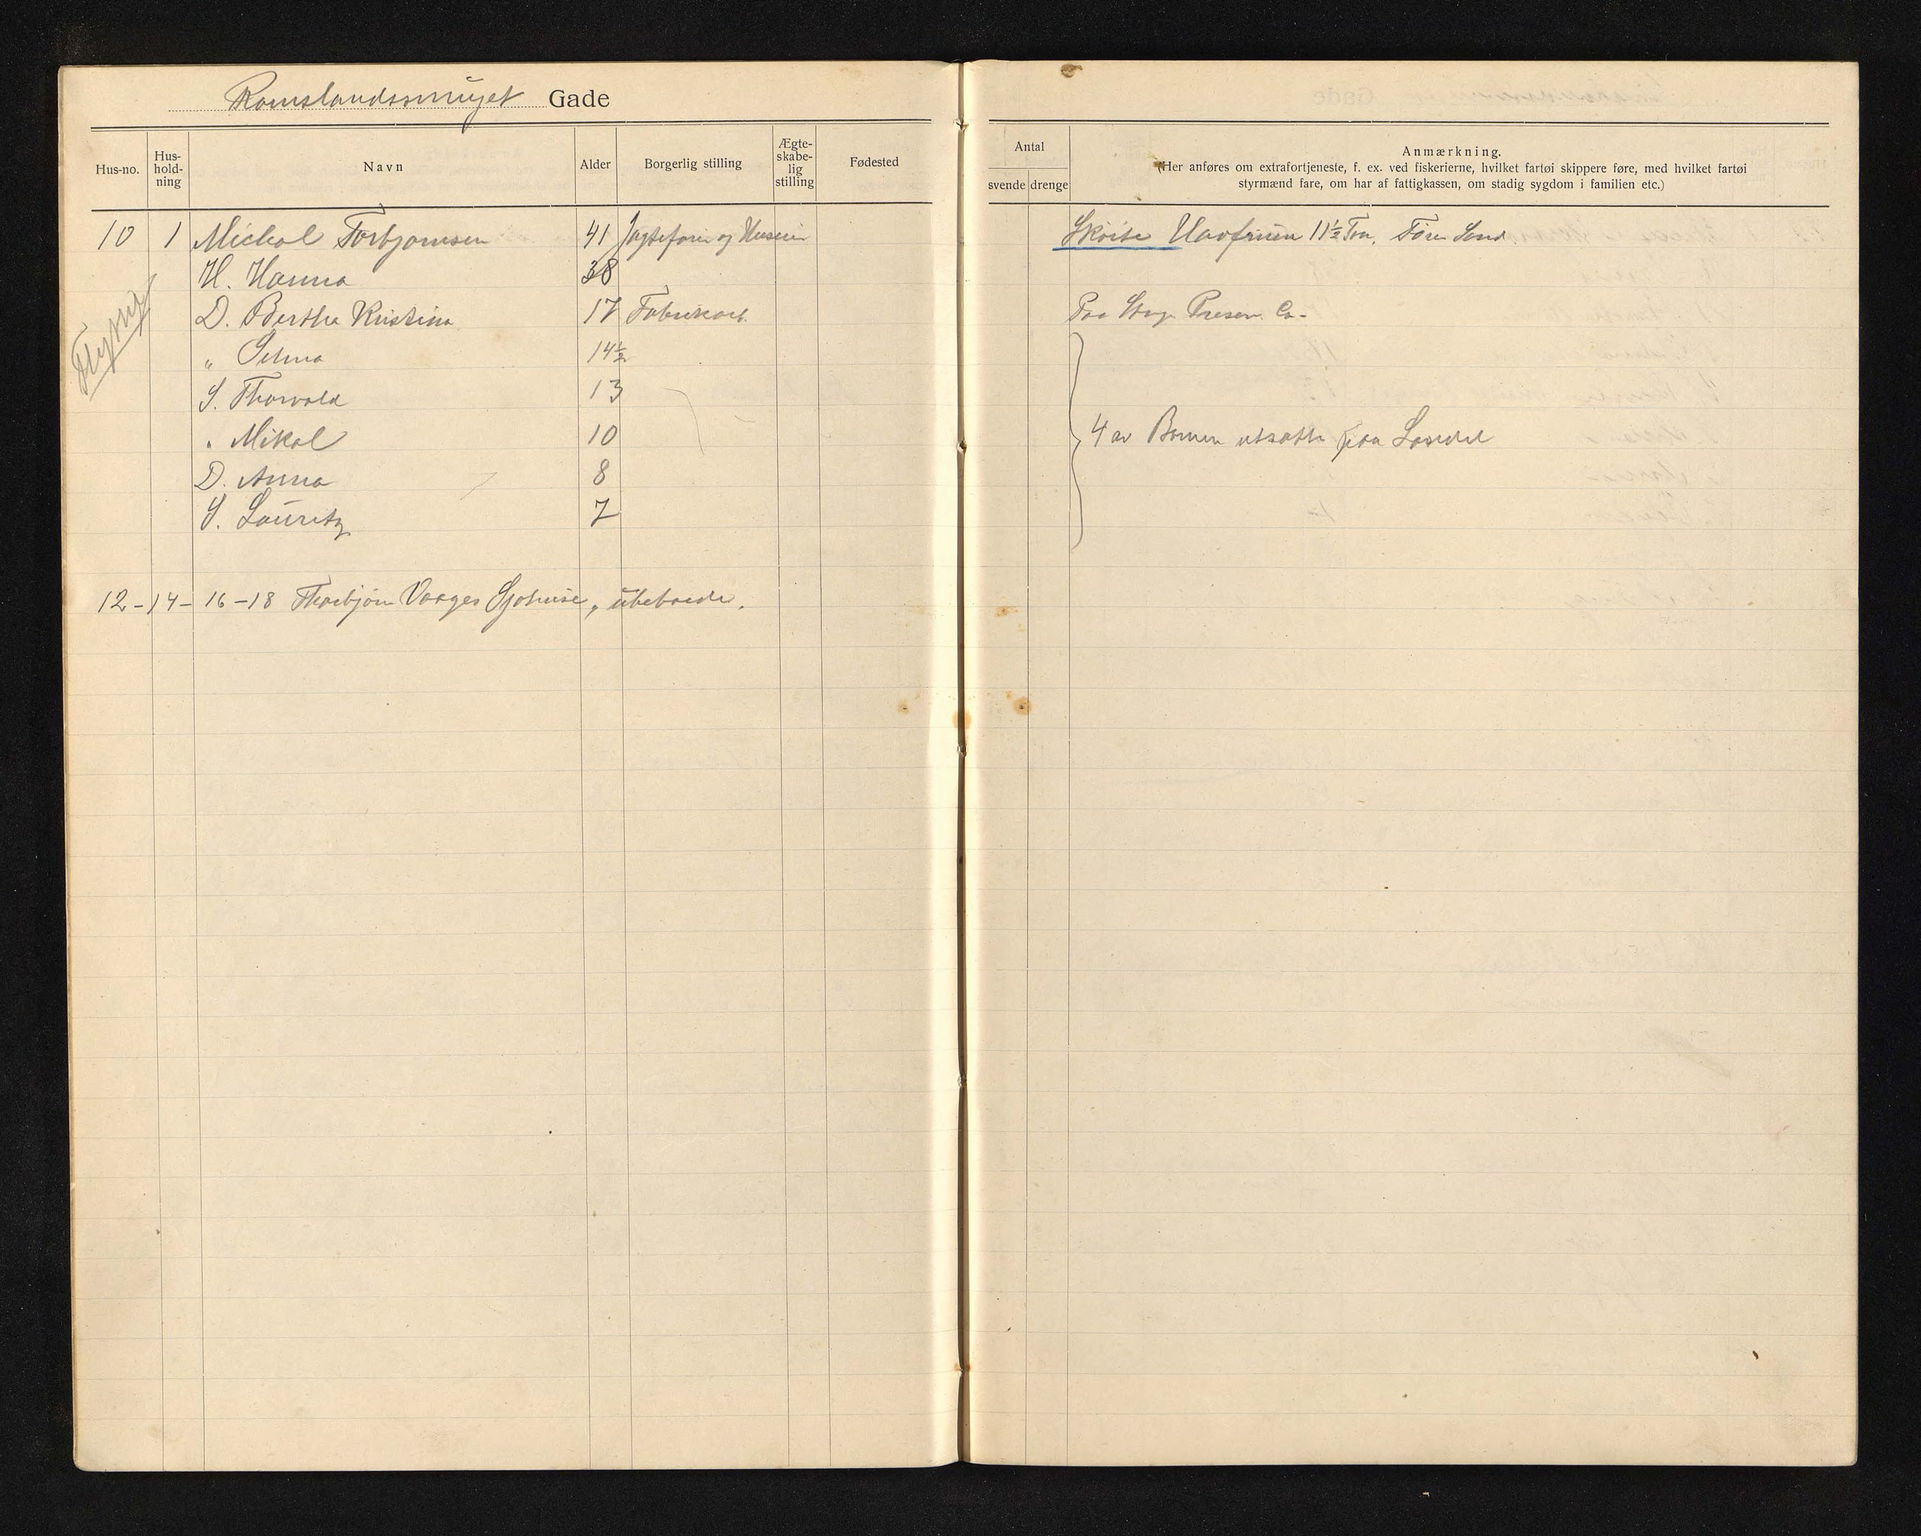 Romslandssmuget Gade
Hus-no. Hus-hold-ning Navn Alder Borgerlig stilling Ægte-skabe-lig stilling Fødested
10 1 Michal Torbjørnsen 41 og Huseier
H. Hanna 38
D. Bertha Kristina 17 Fabrikarb.
„ Selma 14½
S. Thorvald 13
„ Mikal 10
D. Anna 8
S. Lauritz 7
12-14-16-18 Thorbjørn Vaages Sjøhuse, ubeboede.
Flyttet
Antal
svende drenge
Anmærkning.
(Her anføres om extrafortjeneste, f. ex. ved fiskerierne, hvilket fartøi skippere føre, med hvilket fartøi
styrmænd fare, om har af fattigkassen, om stadig sygdom i familien etc.)
Skøite Havfruen 11½ Ton. Fører Sand
Paa Stvg. Preserv. Co-
4 av Barnen utsatte paa Landet